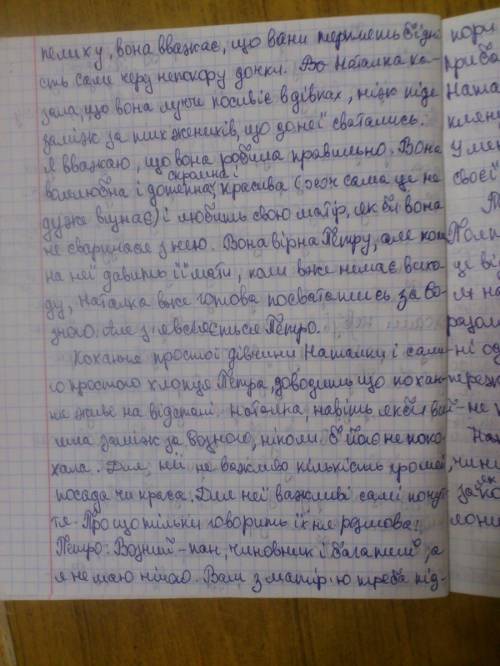 пелиху, вона вважає, що вони терплять бідні-
сть саме через непокору дочки. Бо Наталка ка-
зала, що вона лучше посивіє в дівках, ніж піде
заміж за тих женихів, що до неї сватались.
Я вважаю, що вона робила правильно. Вона
скромна і
волелюбна і дотепна, красива (хоч сама це не
дуже визнає) і любить свою матір, як би вона
не сварилася з нею. Вона вірна Петру, але коли
на неї давить її мати, коли вже немає вихо-
ду, Наталка вже готова посвататись за Во-
зного. Але з'являється Петро.
Кохання простої дівчини Наталки і само-
го простого хлопця Петра, доводить що кохан-
ня живе на відстані. Наталка, навіть якби і вий-
шла заміж за возного, ніколи б його не поко-
хала. Для неї не важливо кількість грошей
посада чи краса. Для неї важливі самі почут-
тя. Про що тільки говорить їхня розмова!
Петро: Возний - пан, чиновник і багатий, а
я не маю нічого. Вам з матір'ю треба під-